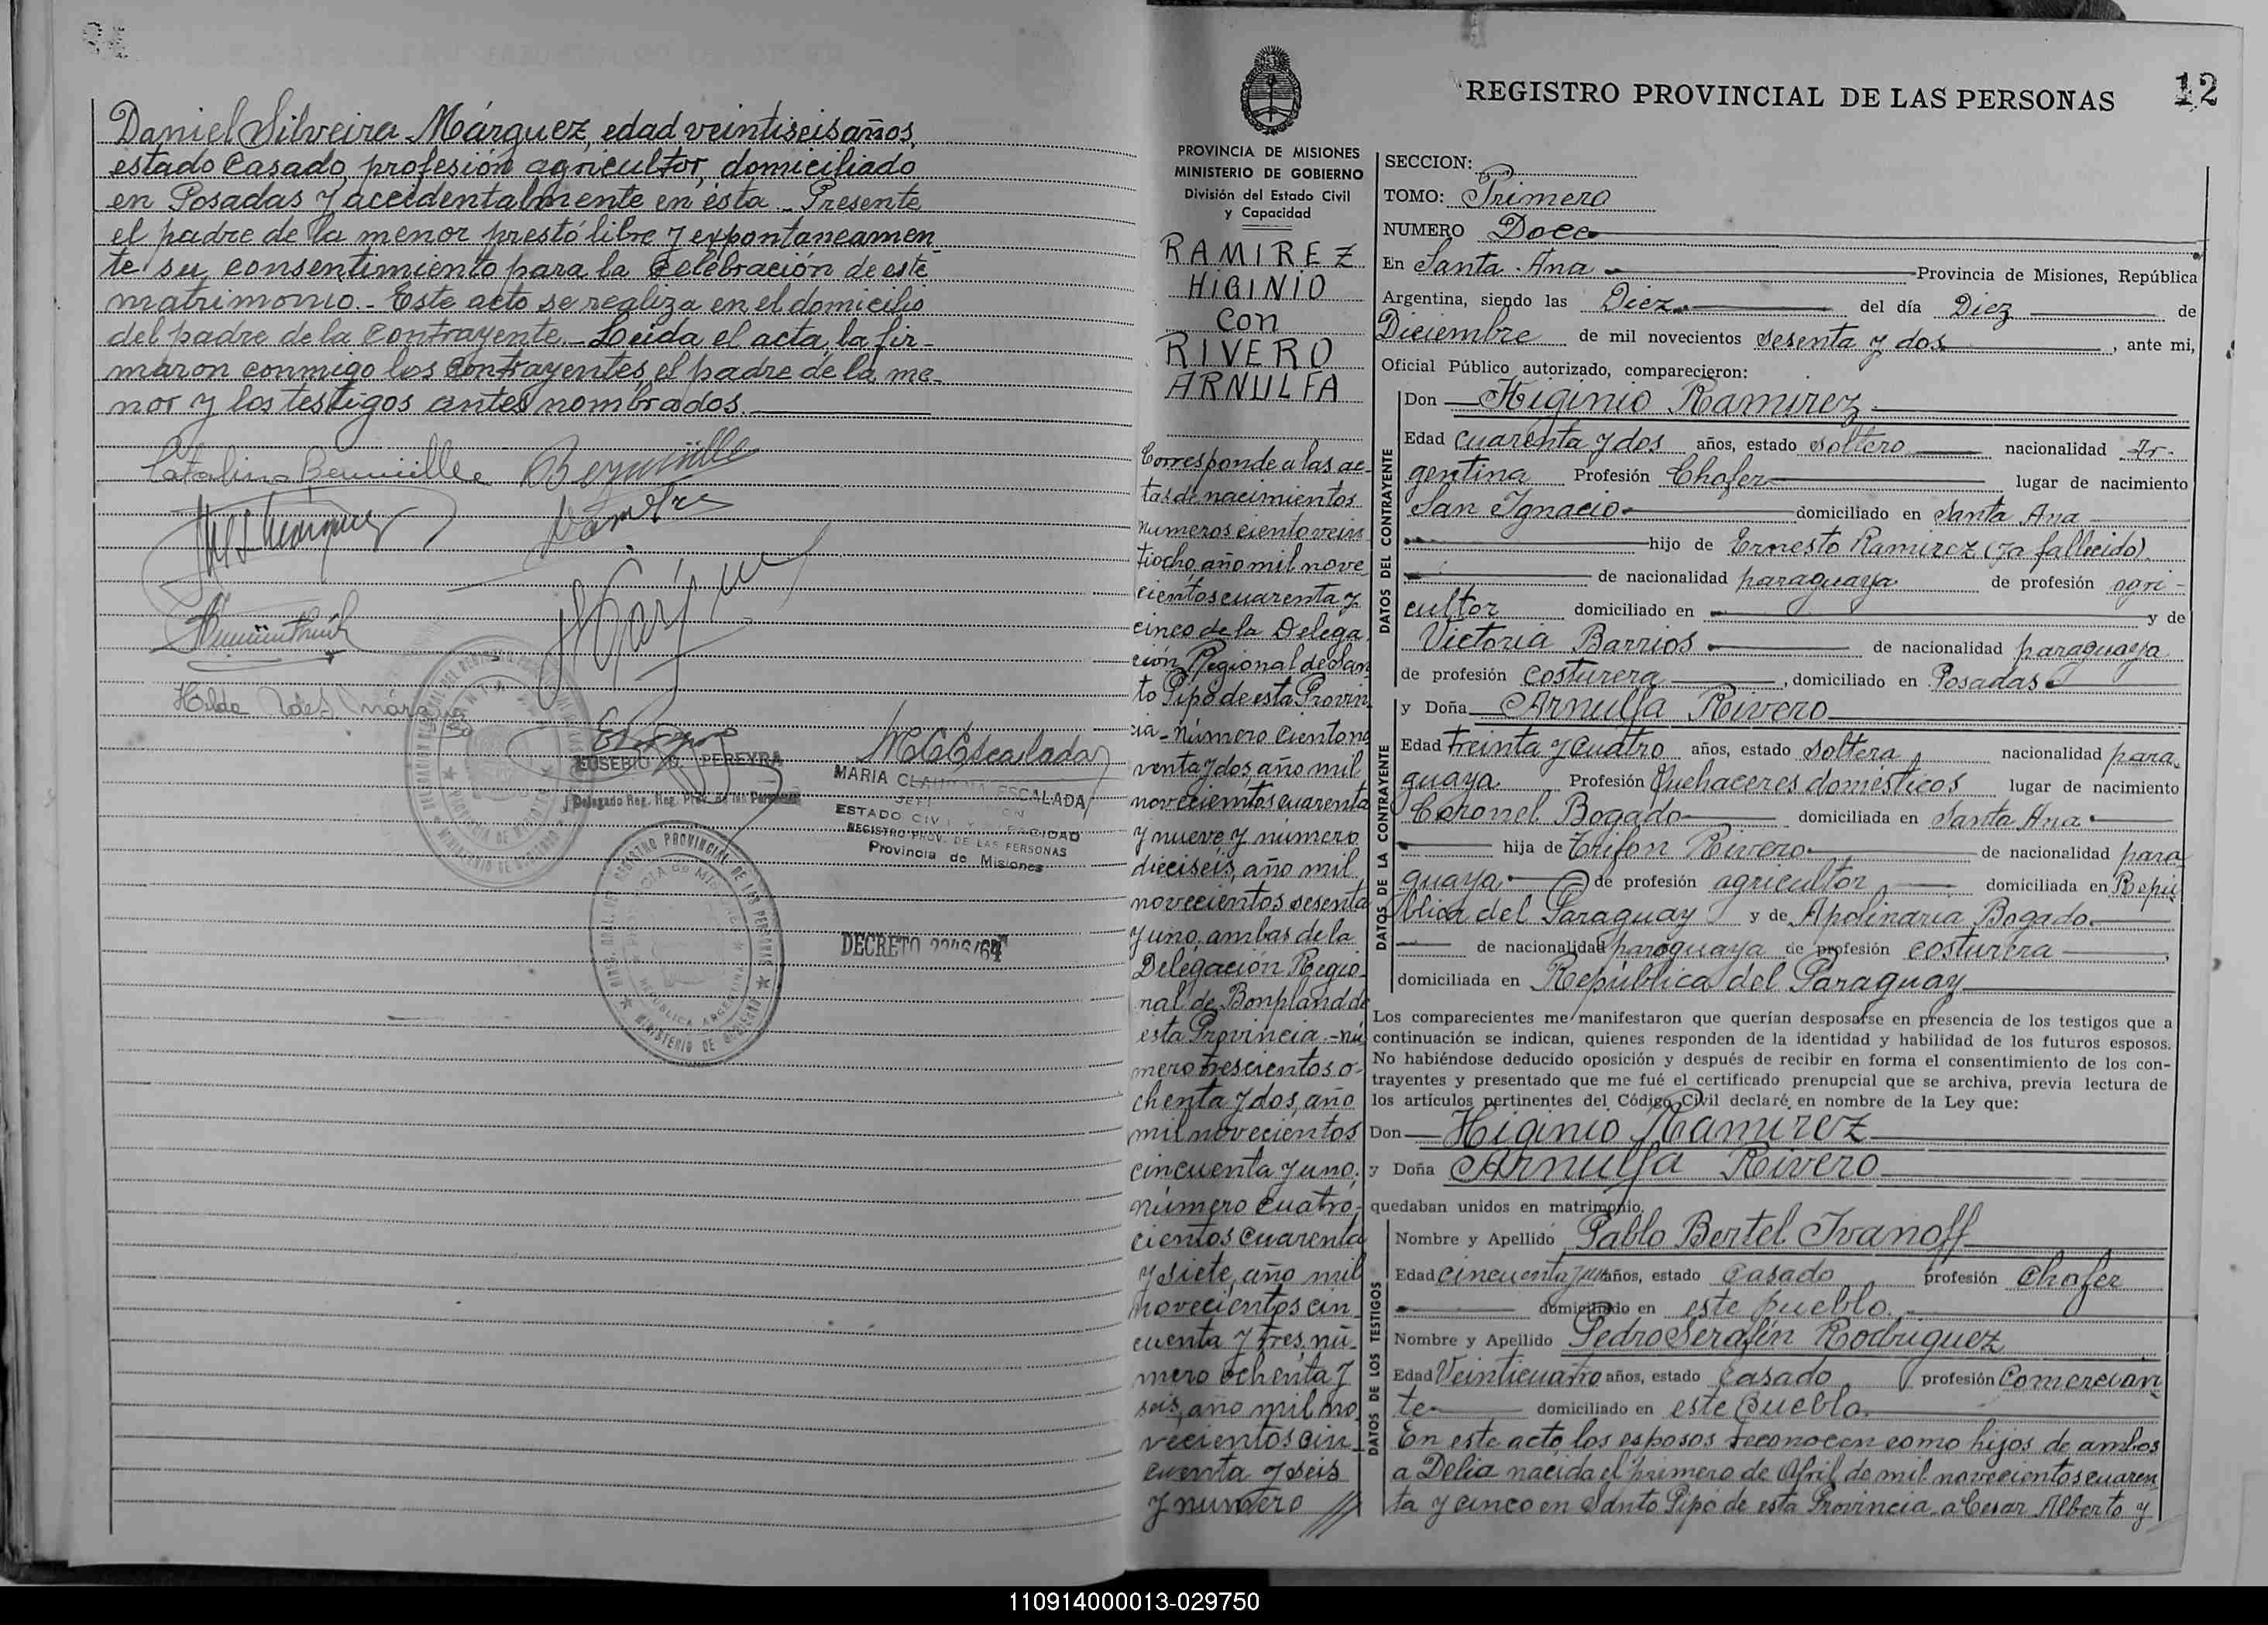 Daniel Silveira Márquez, edad veintiseis años,
estado casado, profesión agricultor, domiciliado
en Posadas y accidentalmente en ésta.- Presente
el padre de la menor prestó libre y expontaneamen-
te su consentimiento para la celebración de este
matrimonio.- Este acto se realiza en el domicilio
del padre de la contrayente.- Leida el acta, la fir-
maron conmigo los contrayentes, el padre de la me-
nor y los testigos antes nombrados.
EUSEBIO G. PEREYRA
Delegado Reg. Reg. Prov. de las Personas
MARIA CLAUDINA ESCALADA
ESTADO CIVIL Y CAPACIDAD
REGISTRO PROV. DE LAS PERSONAS
Provincia de Misiones
REGISTRO PROVINCIAL DE LAS PERSONAS
MINISTERIO DE GOBIERNO
REPUBLICA ARGENTINA
DECRETO 2246/64
12
REGISTRO PROVINCIAL DE LAS PERSONAS
PROVINCIA DE MISIONES
MINISTERIO DE GOBIERNO
División del Estado Civil
y Capacidad
RAMIREZ
HIGINIO
con
RIVERO
ARNULFA
Corresponde a las ac-
tas de nacimientos
numeros ciento vein
tiocho, año mil nove
cientos cuarenta y
cinco de la Delega
ción Regional de San
to Pipó de esta Provin
cia.- número ciento no
venta y dos, año mil
novecientos cuarenta
y nueve y número
dieciseis, año mil
novecientos sesenta
y uno, ambas de la
Delegación Regio-
nal de Bonpland de
esta Provincia.- nú
mero trescientos o-
chenta y dos, año
mil novecientos
cincuenta y uno,
número cuatro-
cientos cuarenta
y siete, año mil
novecientos cin
cuenta y tres, nú-
mero ochenta y
seis, año mil no
vecientos cin
cuenta y seis
y número //
SECCION:
TOMO: Primero
NUMERO Doce
En Santa Ana Provincia de Misiones, República
Argentina, siendo las Diez del día Diez de
Diciembre de mil novecientos sesenta y dos, ante mi,
Oficial Público autorizado, comparecieron:
DATOS DEL CONTRAYENTE
Don Higinio Ramirez
Edad cuarenta y dos años, estado soltero nacionalidad Ar-
gentina Profesión Chofer lugar de nacimiento
San Ignacio domiciliado en Santa Ana
hijo de Ernesto Ramirez (ya fallecido)
de nacionalidad paraguaya de profesión agri-
cultor domiciliado en y de
Victoria Barrios de nacionalidad paraguaya
de profesión costurera, domiciliado en Posadas
DATOS DE LA CONTRAYENTE
y Doña Arnulfa Rivero
Edad treinta y cuatro años, estado soltera nacionalidad para-
guaya Profesión Quehaceres domésticos lugar de nacimiento
Coronel Bogado domiciliada en Santa Ana
hija de Trifon Rivero de nacionalidad para
guaya de profesión agricultor domiciliada en Repú
blica del Paraguay y de Apolinaria Bogado
de nacionalidad paraguaya de profesión costurera,
domiciliada en República del Paraguay
Los comparecientes me manifestaron que querían desposarse en presencia de los testigos que a
continuación se indican, quienes responden de la identidad y habilidad de los futuros esposos.
No habiéndose deducido oposición y después de recibir en forma el consentimiento de los con-
trayentes y presentado que me fué el certificado prenupcial que se archiva, previa lectura de
los artículos pertinentes del Código Civil declaré en nombre de la Ley que:
Don Higinio Ramirez
y Doña Arnulfa Rivero
quedaban unidos en matrimonio.
DATOS DE LOS TESTIGOS
Nombre y Apellido Pablo Bertel Ivanoff
Edad cincuenta y un años, estado casado profesión Chofer
domiciliado en este pueblo.
Nombre y Apellido Pedro Serafín Rodriguez
Edad Veinticuatro años, estado casado profesión Comercian
te domiciliado en este Pueblo.
En este acto, los esposos reconocen como hijos de ambos
a Delia nacida el primero de Abril de mil novecientos cuaren
ta y cinco en Santo Pipó de esta Provincia, a Cesar Alberto y
110914000013-029750